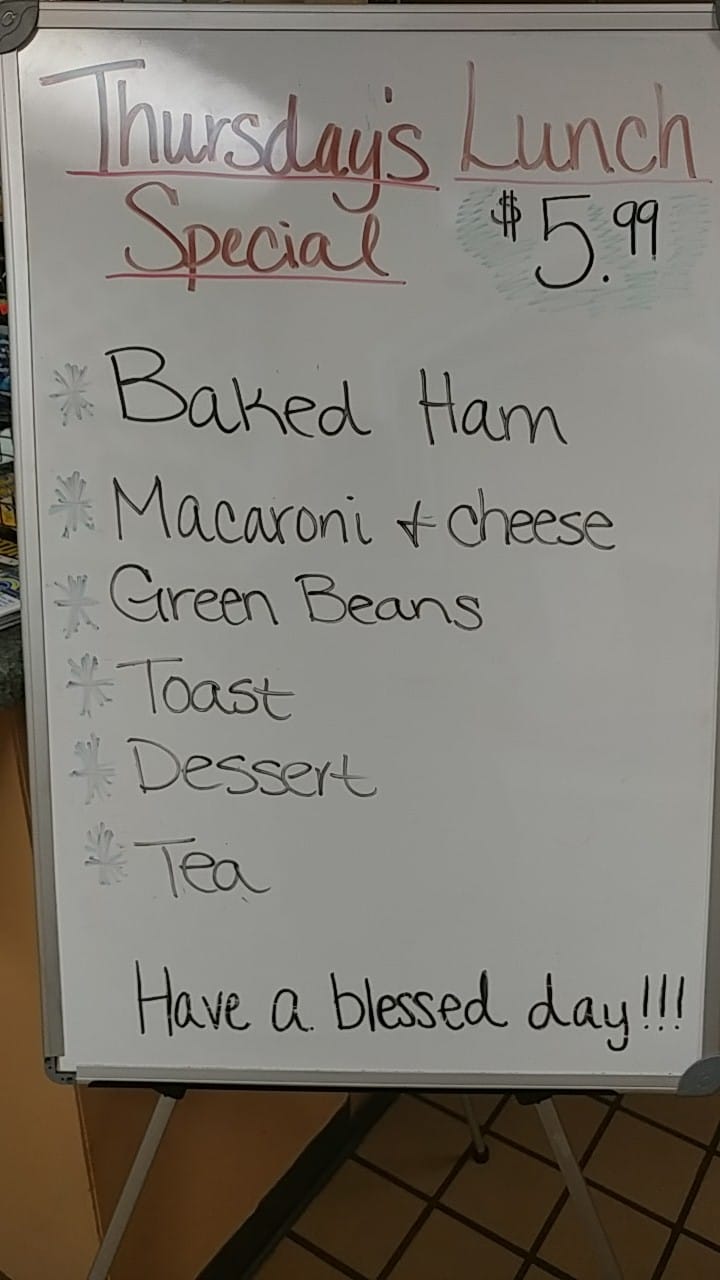 Thursday's Lunch
Special $5.99
* Baked Ham
* Macaroni & cheese
* Green Beans
* Toast
* Dessert
* Tea
Have a blessed day!!!